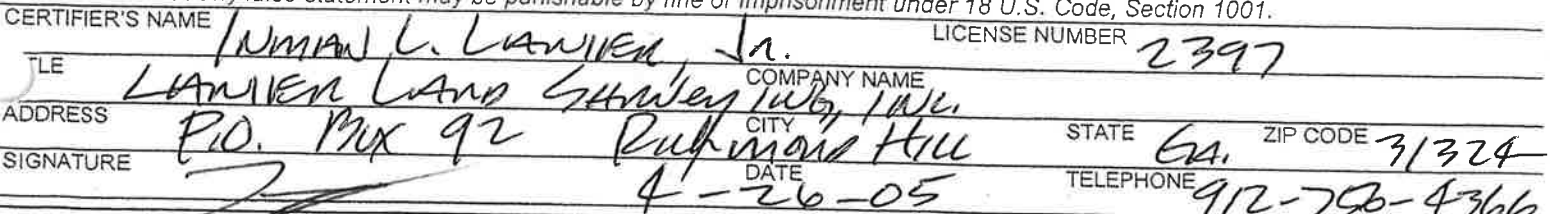 any false statement may be punishable by fine or imprisonment under 18 U.S. Code, Section 1001.
CERTIFIER'S NAME INMAN L. LANIER, Jr. LICENSE NUMBER 2397
TLE LANIER LAND SURVEYING, INC. COMPANY NAME
ADDRESS P.O. Box 92 CITY Richmond Hill STATE GA. ZIP CODE 31324
SIGNATURE DATE 4-26-05 TELEPHONE 912-756-4366